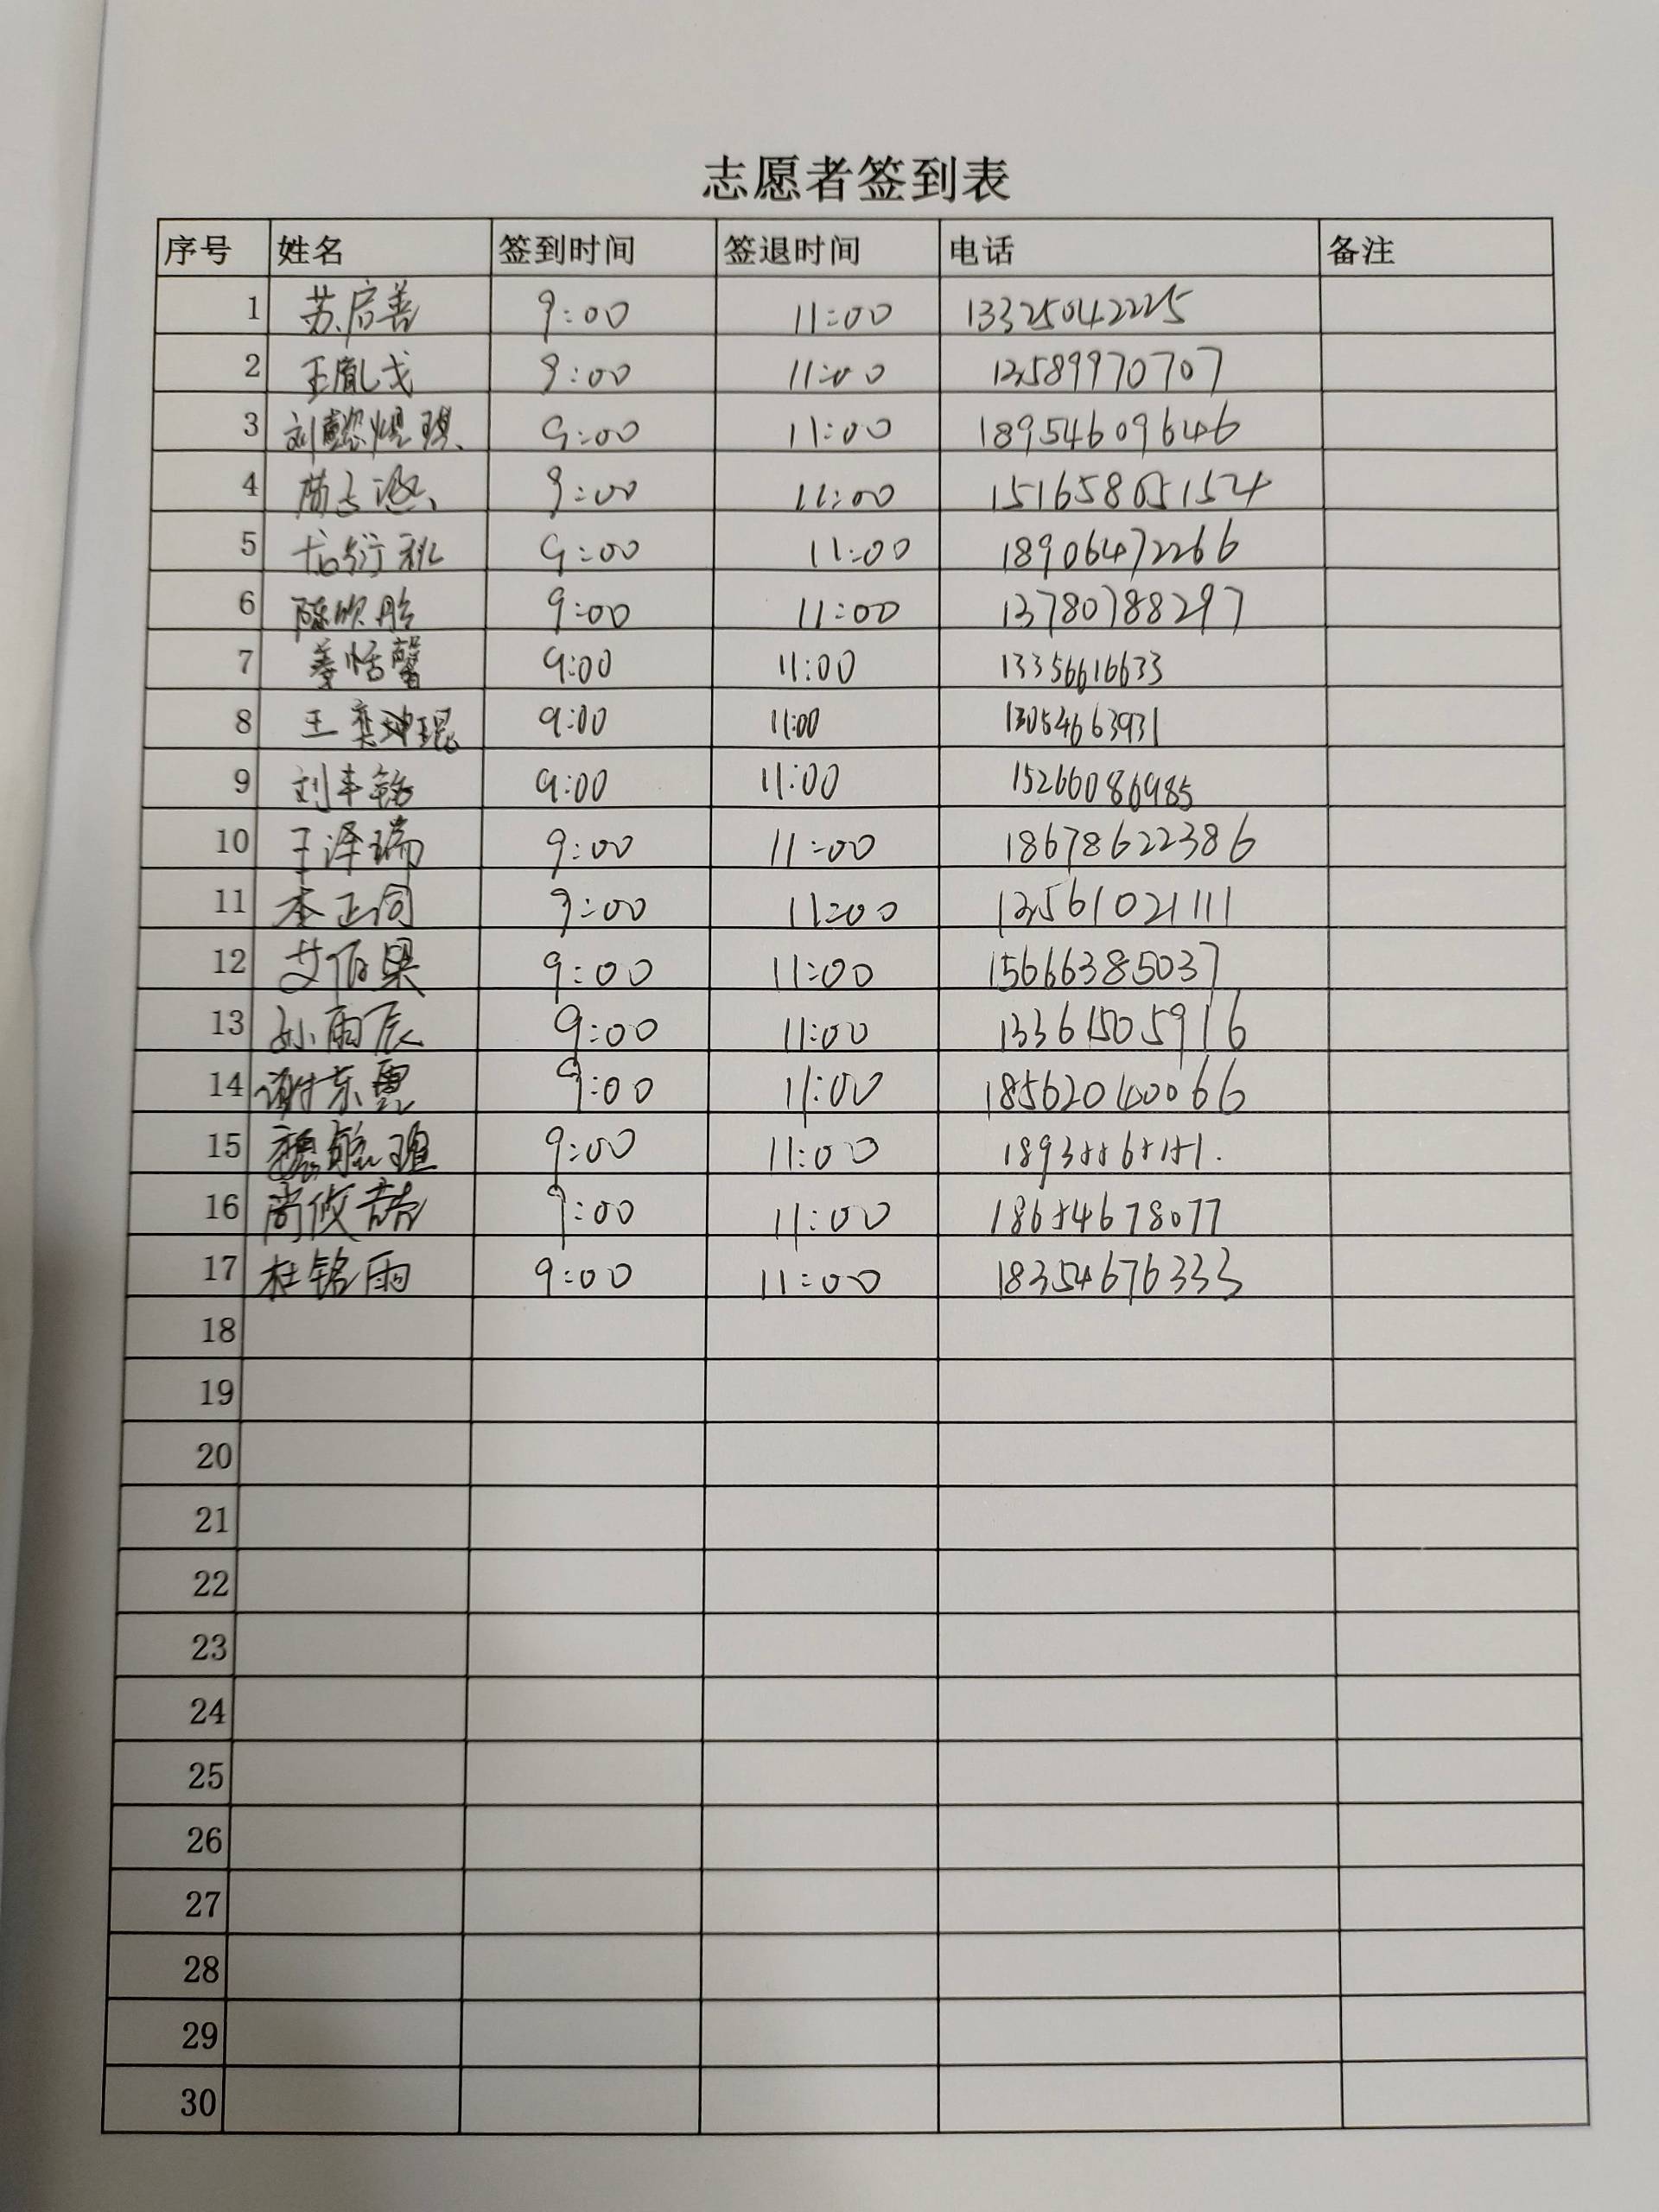 志愿者签到表
序号 姓名 签到时间 签退时间 电话 备注
1 苏启善 9:00 11:00 13325042225
2 王胤戈 9:00 11:00 13589970707
3 刘懿煜琪 9:00 11:00 18954609646
4 9:00 11:00 15165805154
5 尤衍 9:00 11:00 18906472266
6 陈欣彤 9:00 11:00 13780788297
7 姜恬馨 9:00 11:00 13356616633
8 王奕琨 9:00 11:00 13054663931
9 刘丰铭 9:00 11:00 15266086985
10 王泽瑞 9:00 11:00 18678622386
11 李正同 9:00 11:00 13561021111
12 艾佰果 9:00 11:00 15666385037
13 孙雨辰 9:00 11:00 13361505916
14 谢东霓 9:00 11:00 18562040066
15 9:00 11:00
16 尚攸喆 9:00 11:00 18654678077
17 杜铭雨 9:00 11:00 18354676333
18
19
20
21
22
23
24
25
26
27
28
29
30